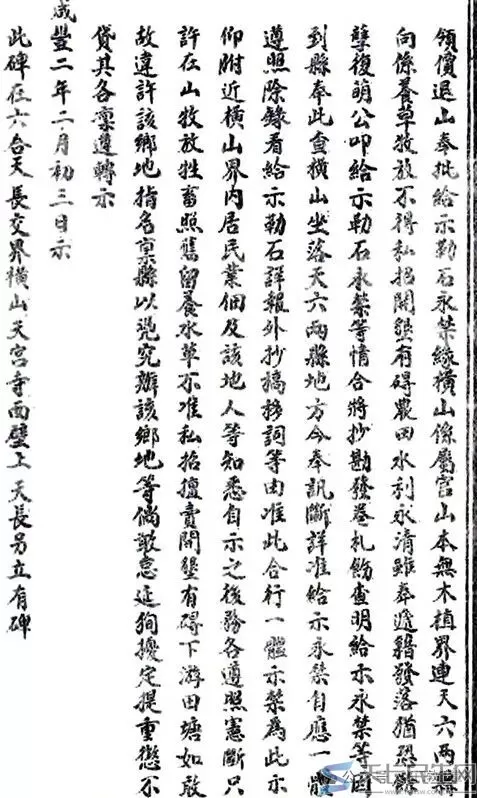 領價退山奉批給示勒石永禁緣橫山係屬官山本無木植界連天六兩縣
向係養草牧放不得私招開墾有碍農田水利永清雖奉遞籍發落猶恐餘
孽復萌公叩給示勒石永禁等情合將抄勘發卷札飭查明給示永禁等因
到縣奉此查橫山坐落天六兩縣地方今奉訊斷詳准給示永禁自應一體
遵照除錄看給示勒石詳報外抄摛移詞等由准此合行一體示禁為此示
仰附近橫山界內居民業佃及該地人等知悉自示之後務各遵照憲斷只
許在山牧放牲畜照舊留養水草不准私招擅賣開墾有碍下游田塘如敢
故違許該鄉地指名稟縣以凭究辦該鄉地等倘敢怠延狥擾定提重懲不
貸其各凜遵轉示
咸豐二年二月初三日示
此碑在六合天長交界橫山天宮寺面壁上 天長另立有碑